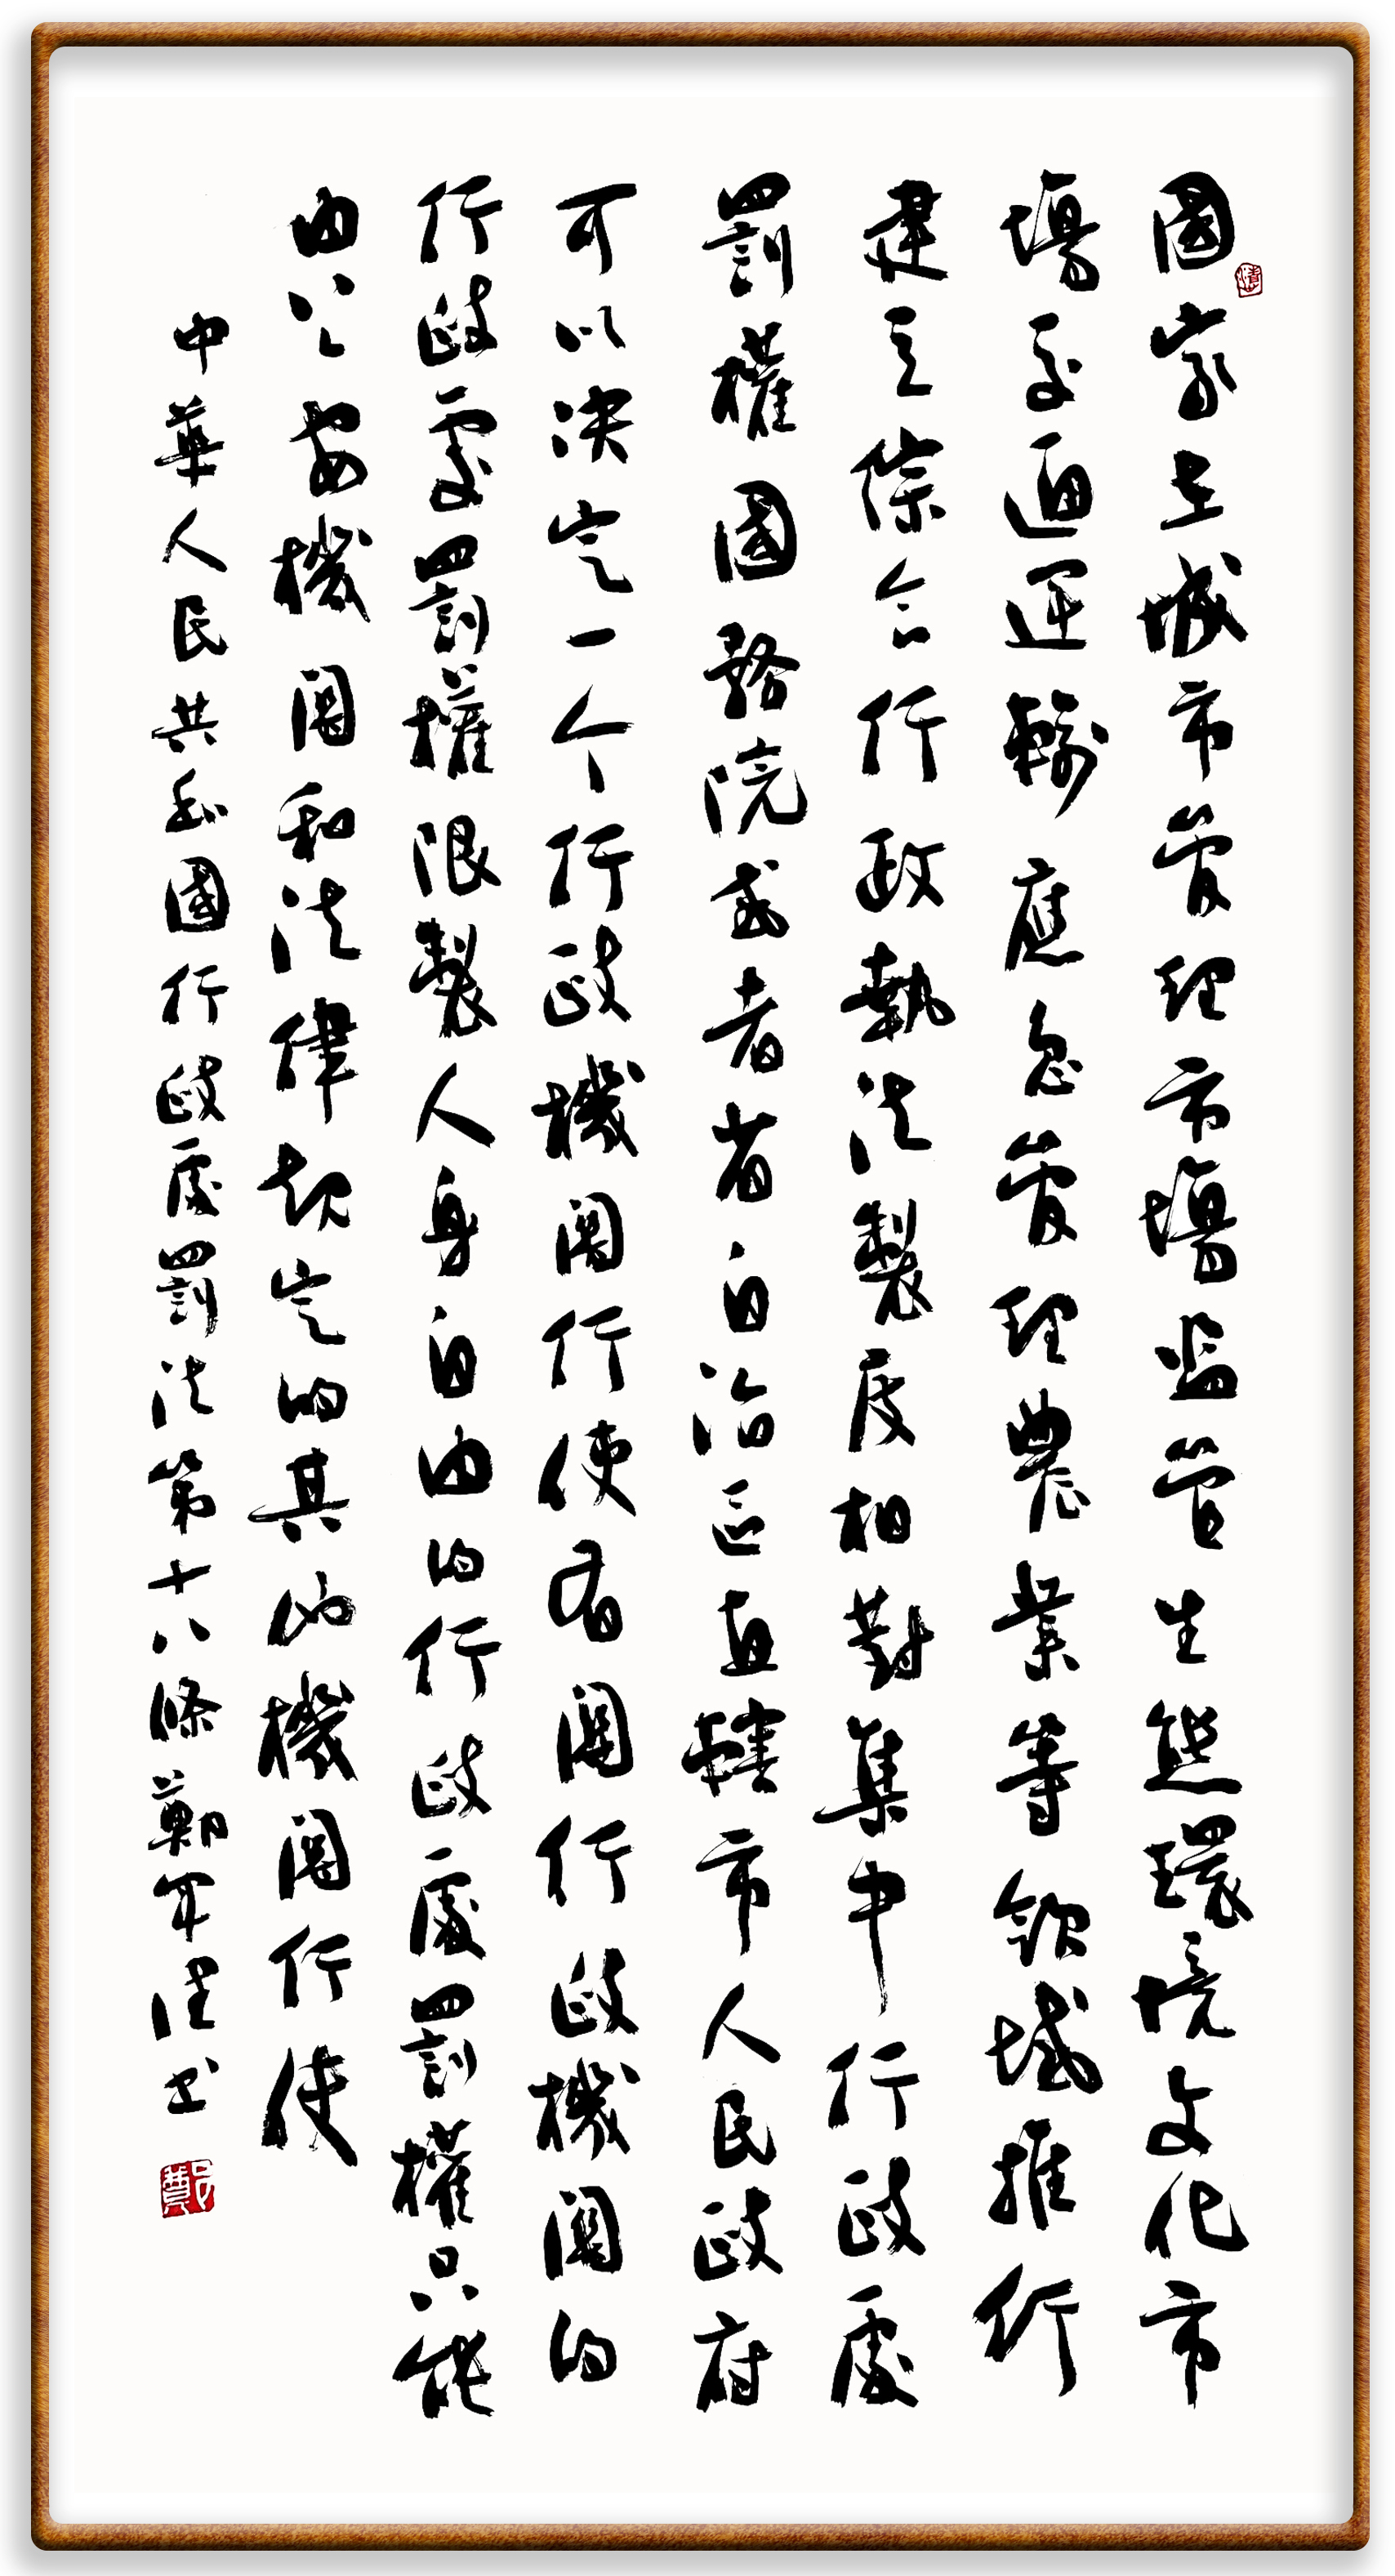 國家在城市管理市場監管生態環境文化市
場交通運輸應急管理農業等領域推行
建立綜合行政執法製度相對集中行政處
罰權國務院或者省自治區直轄市人民政府
可以决定一个行政機關行使有關行政機關的
行政處罰權限製人身自由的行政處罰權只能
由公安機關和法律規定的其他機關行使
中華人民共和國行政處罰法第十八條鄭軍健书